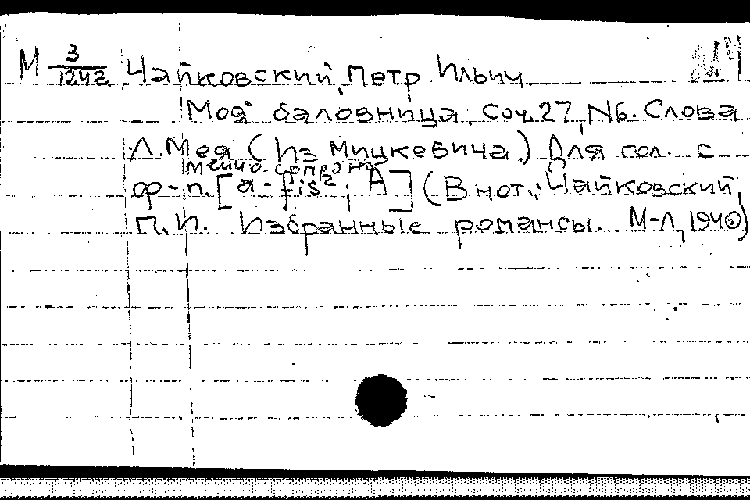 М 3/1242 Чайковский, Петр Ильич
Моя баловница. Соч. 27, N6. Слова
Л. Мея (Из Мицкевича) Для гол. с
меццо-сопрано
ф-п. [a-fis²; A] (В нот.: Чайковский,
П.И. Избранные романсы. М-Л, 1940)